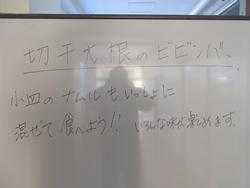 切干大根のビビンバ
小皿のナムルもいっしょに
混ぜて食べよう!! いろんな味が楽しめます。